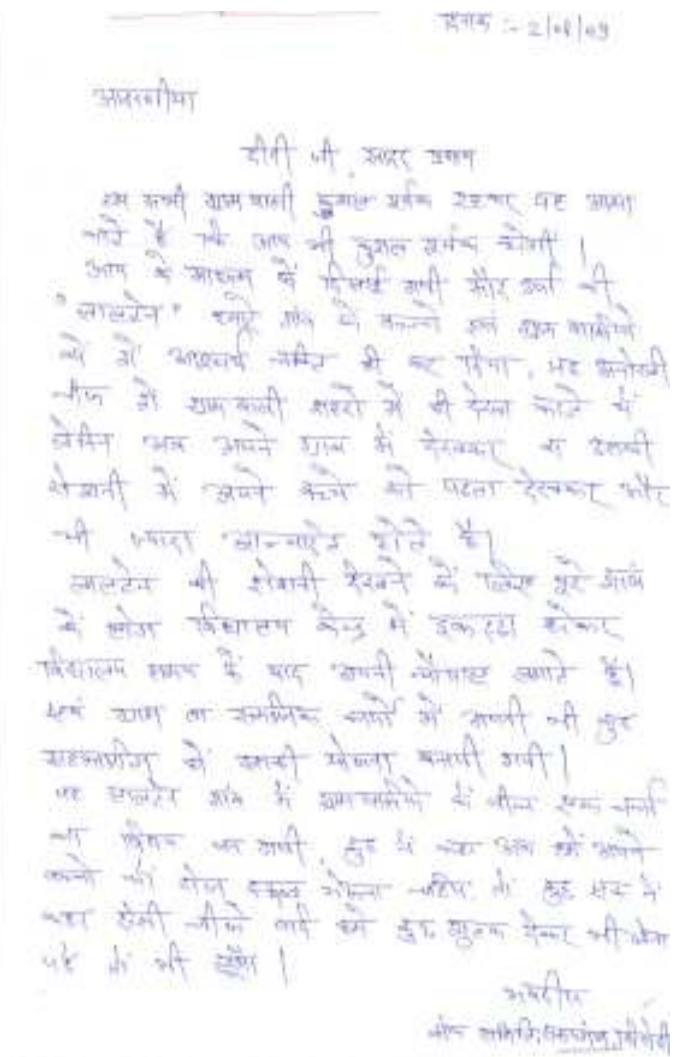 दिनांक :- 2/08/09
आदरणीया
दीदी जी, सादर प्रणाम
हम सभी ग्राम वासी कुशल पूर्वक रहकर यह आशा
करते है कि आप भी कुशल पूर्वक होगी |
आप के माध्यम से दिलाई गयी सौर ऊर्जा की
"लालटेन" हमारे गांव के बच्चो एवं ग्राम वासीयो
को तो आश्चर्य चकित ही कर दिया, यह अनोखी
चीज तो ग्राम वासी शहरो में ही देखा करते थे
लेकिन अब अपने ग्राम में देखकर व उसकी
रोशनी में अपने बच्चे को पढता देखकर और
भी ज्यादा होते है|
लालटेन की रोशनी देखने के लिए पूरे गांव
के लोग विद्यालय केन्द्र में इकट्ठा होकर
विद्यालय समय के बाद अपनी चौपाल लगाते है|
एवं ग्राम व सामाजिक कार्यो में अपनी भी कुछ
की योजना बनायी गयी |
यह लालटेन गांव में ग्रामवासियो के बीच एक चर्चा
का विषय बन गयी, कुछ ने कहा अब हमें अपने
बच्चो को रोज स्कूल भेजना चाहिए तो कुछ एक ने
कहा ऐसी चीजे यदि हमे कुछ शुल्क देकर भी लेना
पड़े तो भी लेंगे |
भवदीय